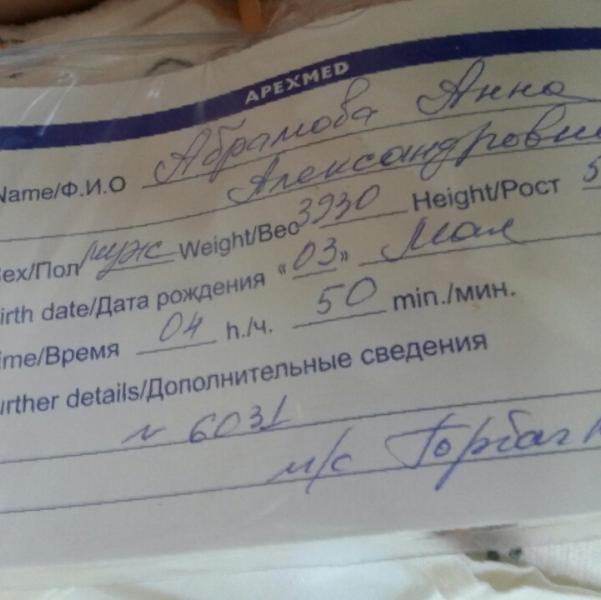 APEXMED
Name/Ф.И.О Абрамова Анна
Александровн
Sex/Пол муж Weight/Вес 3930 Height/Рост 5
irth date/Дата рождения "03" Мая
ime/Время 04 h./ч. 50 min./мин.
urther details/Дополнительные сведения
N 6031
м/с Горбач